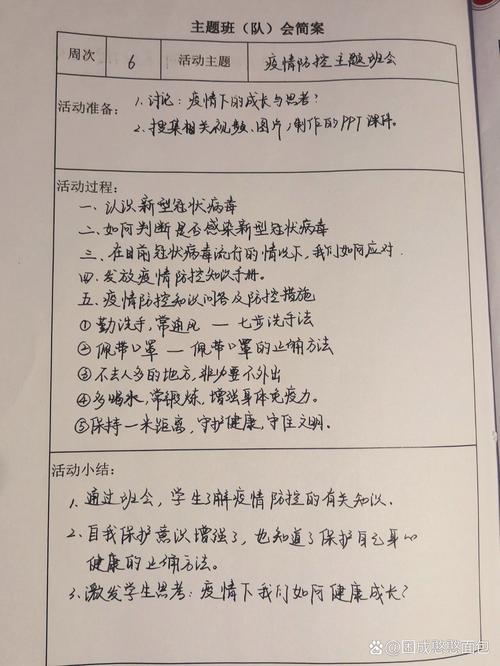 主题班（队）会简案
周次 6 活动主题 疫情防控主题班会
活动准备： 1. 讨论：疫情下的成长与思考？
2. 搜集相关视频、图片，制作的PPT课件。
活动过程：
一. 认识新型冠状病毒
二. 如何判断是否感染新型冠状病毒
三. 在目前冠状病毒流行的情况下，我们如何应对.
四. 发放疫情防控知识手册.
五. 疫情防控知识问答及防控措施
①勤洗手，常通风 — 七步洗手法
②佩带口罩 — 佩带口罩的正确方法
③不去人多的地方，非必要不外出
④多喝水，常锻炼，增强身体免疫力。
⑤保持一米距离，守护健康，守住文明.
活动小结：
1. 通过班会，学生了解疫情防控的有关知识.
2. 自我保护意识增强了，也知道了保护自己身心
健康的正确方法。
3. 激发学生思考：疫情下我们如何健康成长？
Bai百度 @困成憨憨面包